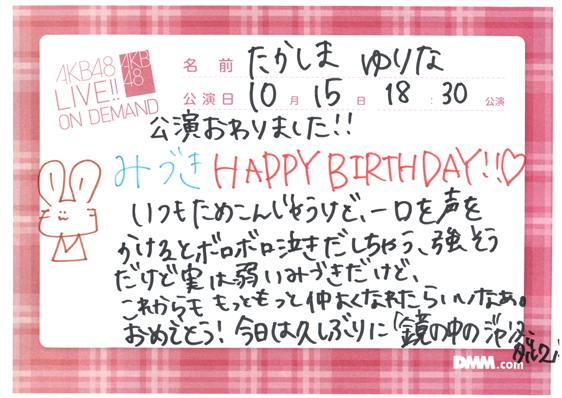 AKB48
LIVE!!
ON DEMAND
AKB
48
名前 たかしま ゆりな
公演日 10月15日 18:30公演
公演おわりました!!
みづき HAPPY BIRTHDAY!!♡
いつもためこんじゃうけど、一口を声を
かけるとボロボロ泣きだしちゃう、強そう
だけど実は弱いみづきだけど、
これからももっともっと仲よくなれたらいいなぁ。
おめでとう!今日は久しぶりに「鏡の中のジャンヌ・
ダルク」
DMM.com